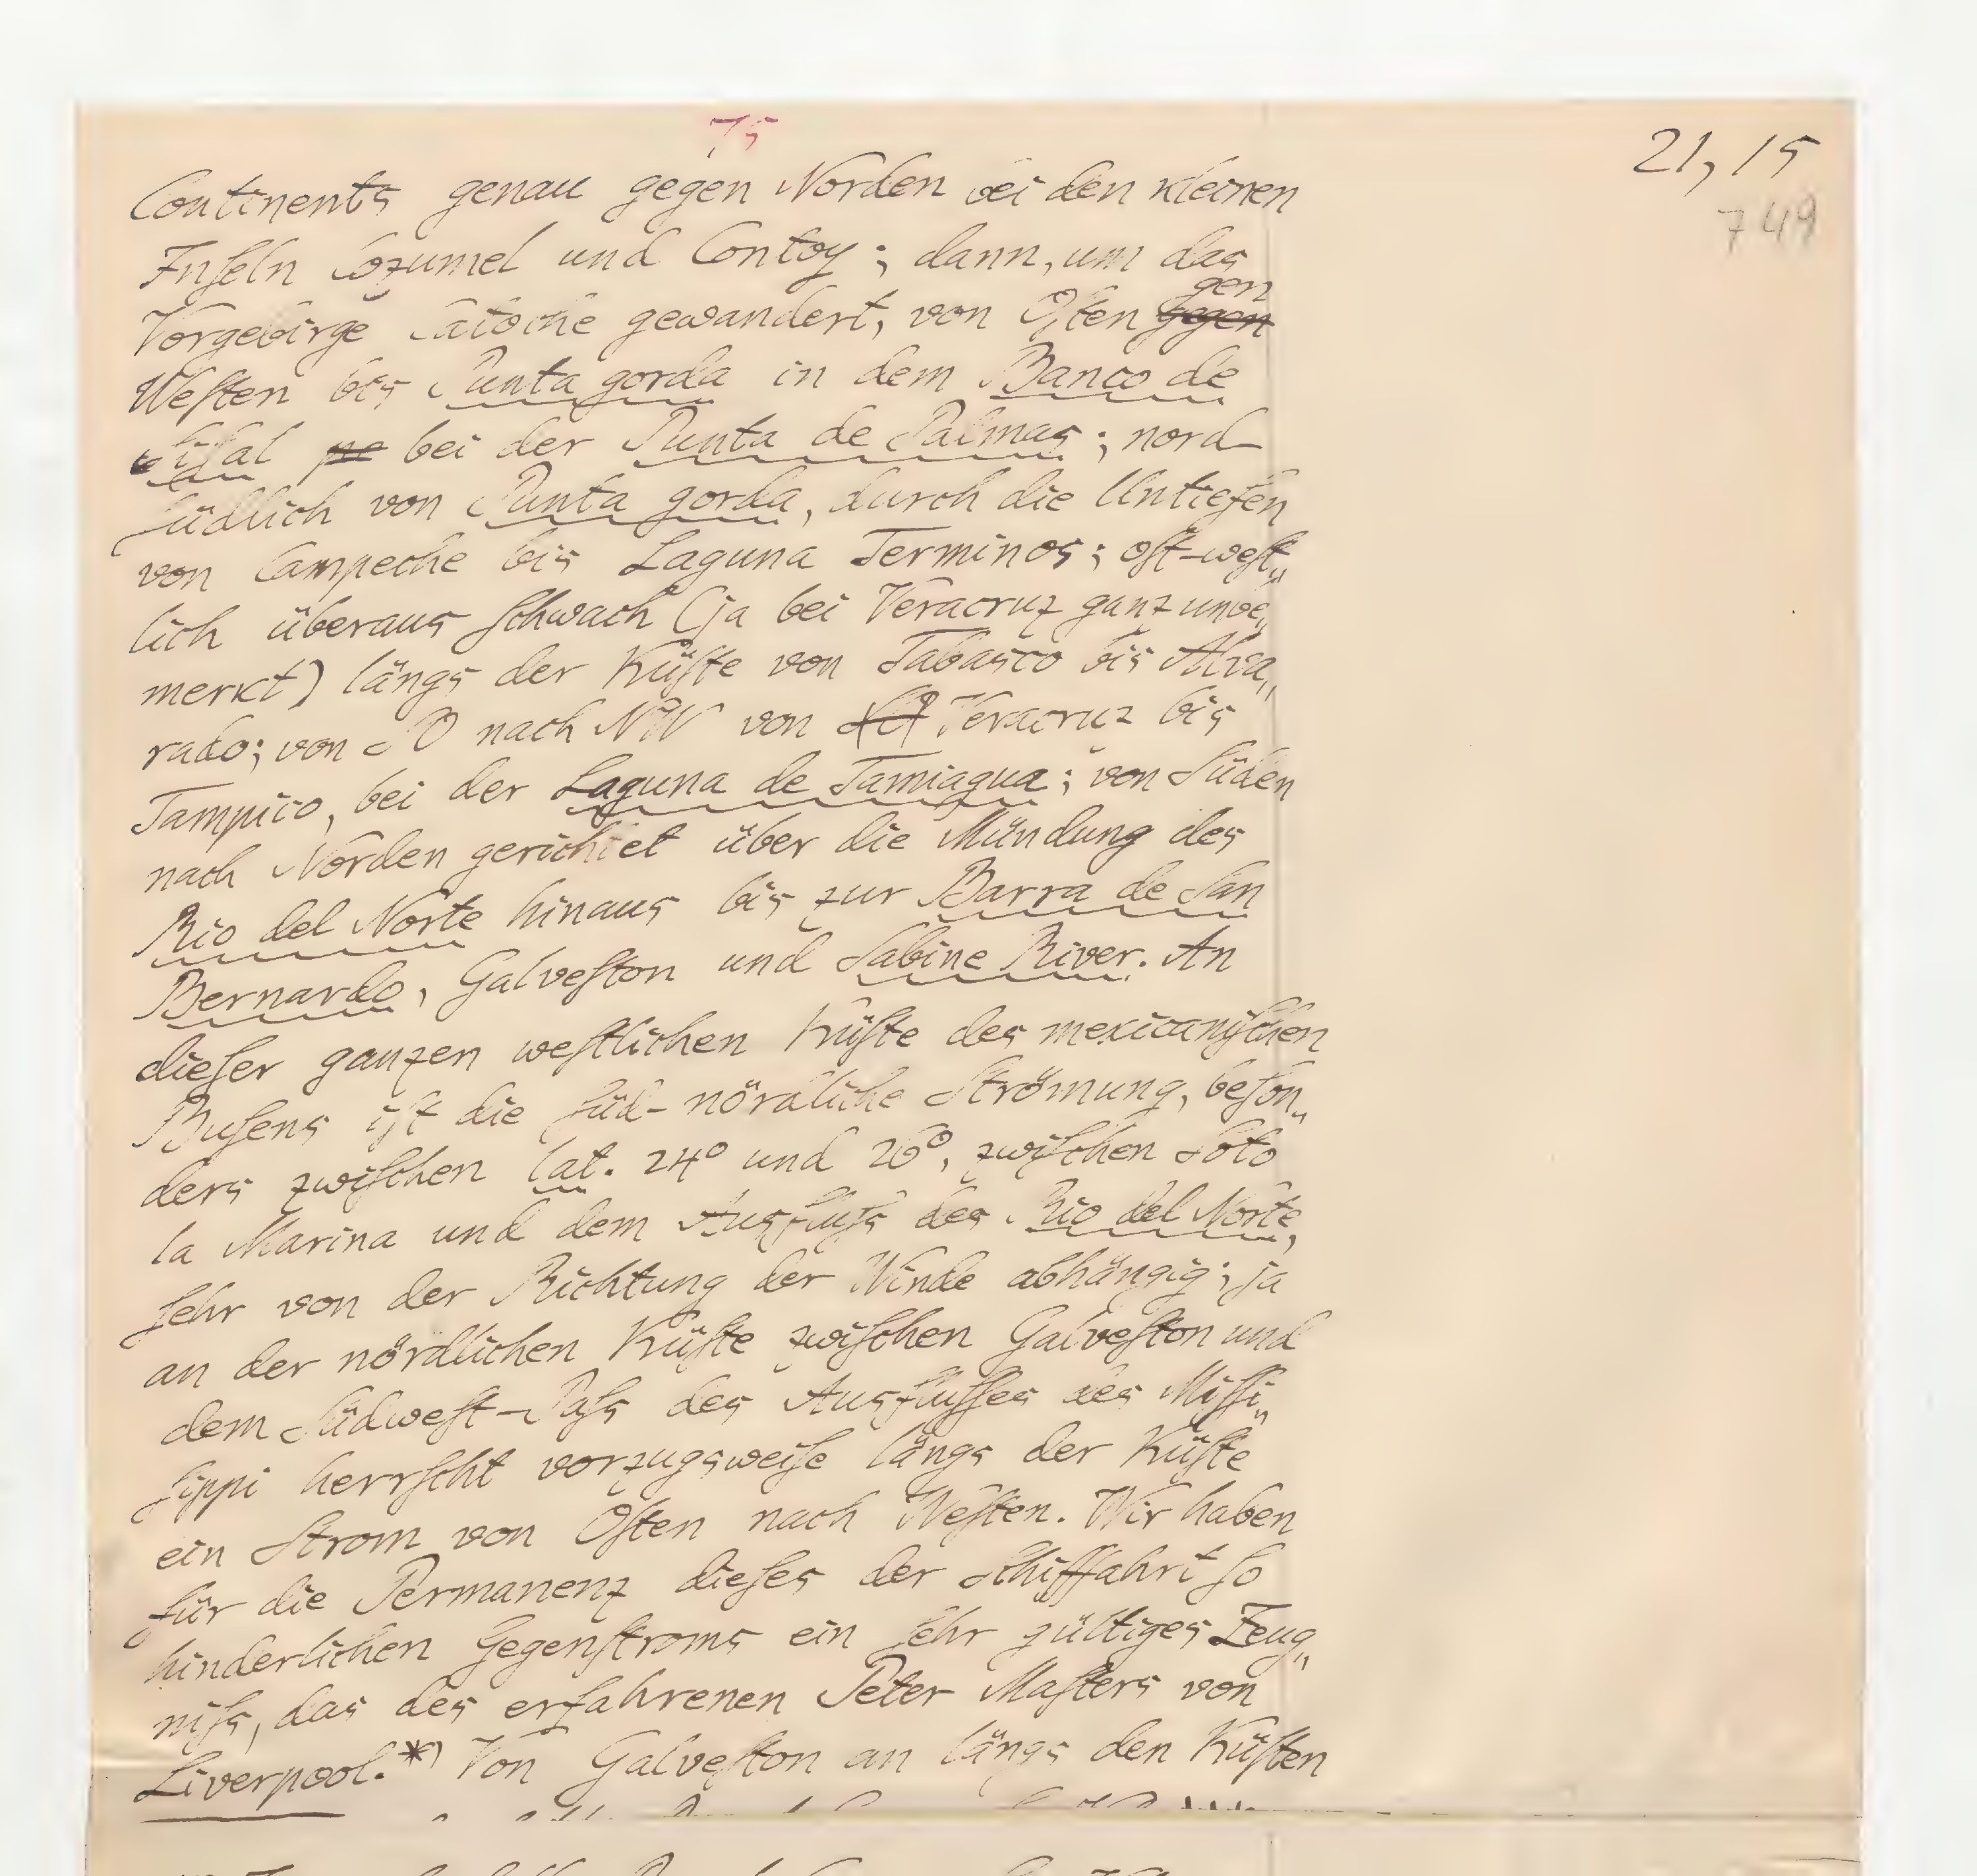 75
21, 15
749
Continents genau gegen Norden bei den kleinen
Inſeln Cozumel und Contoy; dann, um das
gen
Vorgebirge Catoche gewandert, von Oſten gegen
Weſten bis Punta gorda in dem Banco de
Siſal pe bei der Punta de Palmas; nord-
ſüdlich von Punta gorda, durch die Untiefen
von Campeche bis Laguna Terminos; oſt-weſt„
lich überaus ſchwach (ja bei Veracruz ganz unbe„
merkt) längs der Küſte von Tabasco bis Alva„
rado; von SO nach NW von Veracruz bis
Tampico, bei der Laguna de Tamiagua; von Süden
nach Norden gerichtet über die Mündung des
Rio del Norte hinaus bis zur Barra de San
Bernardo, Galveſton und Sabine River. An
dieſer ganzen weſtlichen Küſte des mexicaniſchen
Buſens iſt die ſüd-nördliche Strömung, beſon„
ders zwiſchen lat. 24° und 26°, zwiſchen Soto
la Marina und dem Ausfluſs des Rio del Norte,
ſehr von der Richtung der Winde abhängig; ja
an der nördlichen Küſte zwiſchen Galveſton und
dem Südweſt-Paſs des Ausfluſſes des Miſſi„
ſippi herrſcht vorzugsweiſe längs der Küſte
ein Strom von Oſten nach Weſten. Wir haben
für die Permanenz dieſes der Schiffahrt ſo
hinderlichen Gegenſtroms ein ſehr gültiges Zeug„
niſs, das des erfahrenen Peter Maſters von
Liverpool.*) Von Galveſton an längs den Küſten